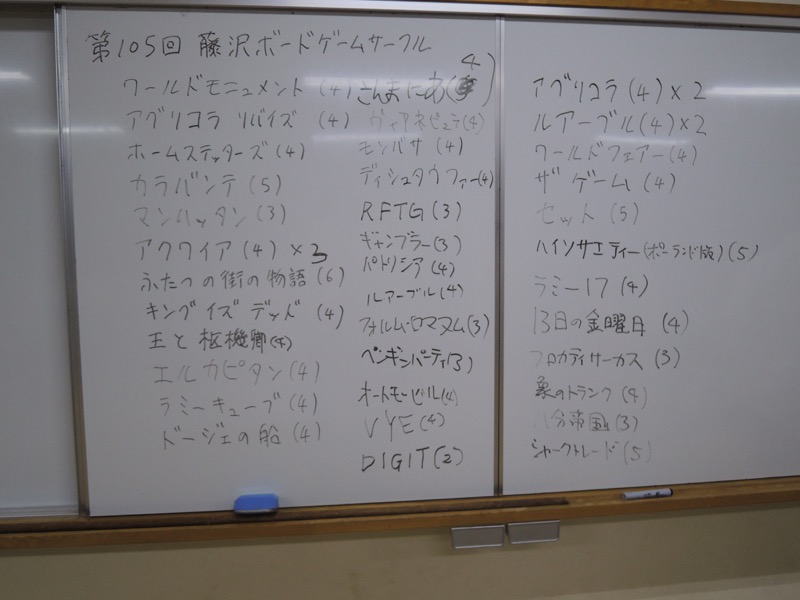 第105回 藤沢ボードゲームサークル
ワールドモニュメント (4)
アグリコラ リバイズ (4)
ホームステッターズ (4)
カラバンテ (5)
マンハッタン (3)
アクワイア (4) ×3
ふたつの街の物語 (6)
キングイズデッド (4)
王と枢機卿 (4)
エルカピタン (4)
ラミーキューブ (4)
ドージェの船 (4)
さんまにあ (4)
ヴィアネビュラ (4)
モンバサ (4)
ディシュタウファー (4)
RFTG (3)
ギャンブラー (3)
パトリシア (4)
ルアーブル (4)
フォルム・ロマヌム (3)
ペンギンパーティ (3)
オートモービル (4)
VYE (4)
DIGIT (2)
アグリコラ (4) × 2
ルアーブル (4) × 2
ワールドフェアー (4)
ザ ゲーム (4)
セット (5)
ハイソサエティー (ポーランド版) (5)
ラミー17 (4)
13日の金曜日 (4)
フロカティサーカス (3)
象のトランク (4)
八分帝国 (3)
シャークトレード (5)